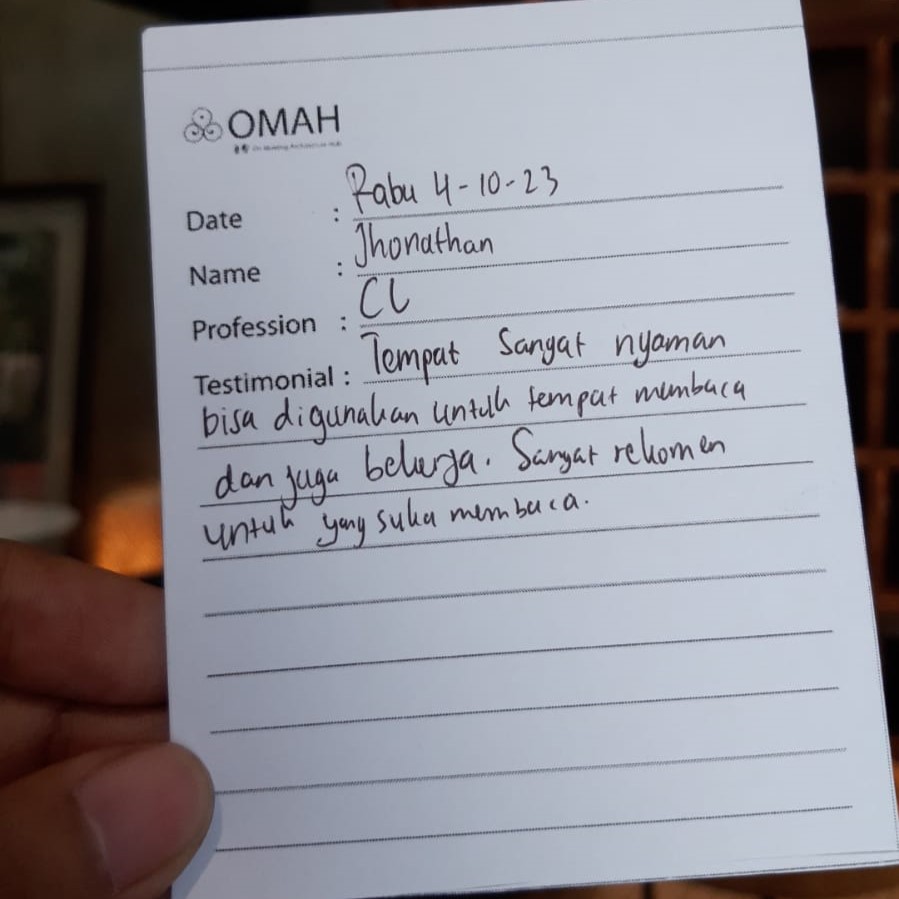 OMAH
On Making Architecture Hub
Date : Rabu 4-10-23
Name : Jhonathan
Profession : CL
Testimonial : Tempat Sangat nyaman
bisa digunakan untuk tempat membaca
dan juga bekerja. Sangat rekomen
untuk yang suka membaca.